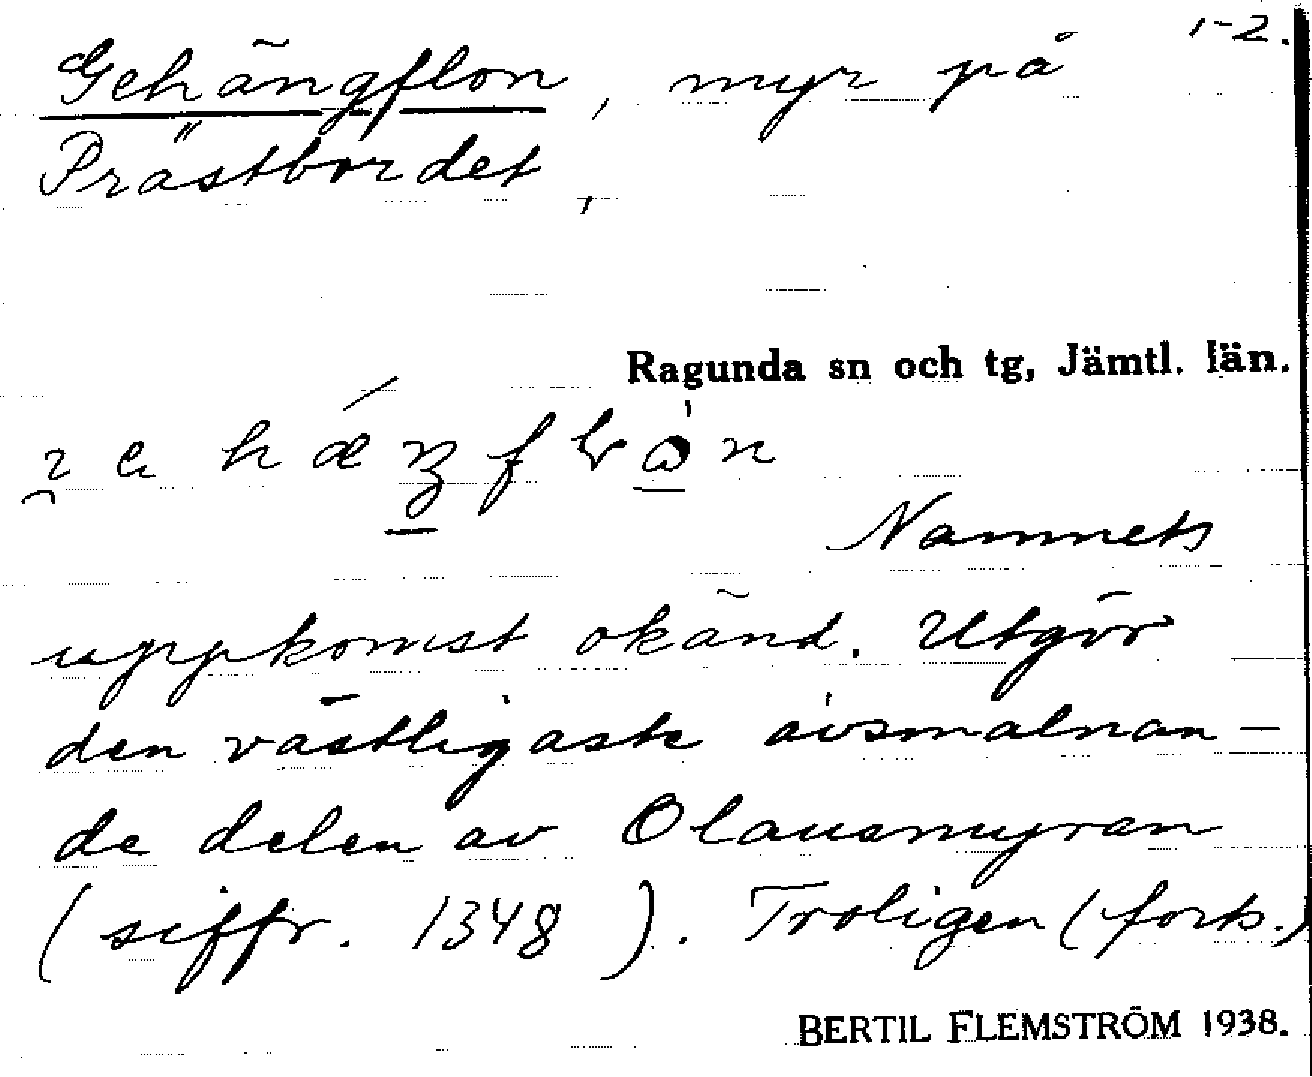 1-2.
Gehängflon, myr på
Prästbordet,
Ragunda sn och tg, Jämtl. län.
Namnets
uppkomst okänd. Utgör
den västligaste avsmalnan-
de delen av Olausmyran
(siffr. 1348). Troligen (forts.)
BERTIL FLEMSTRÖM 1938.